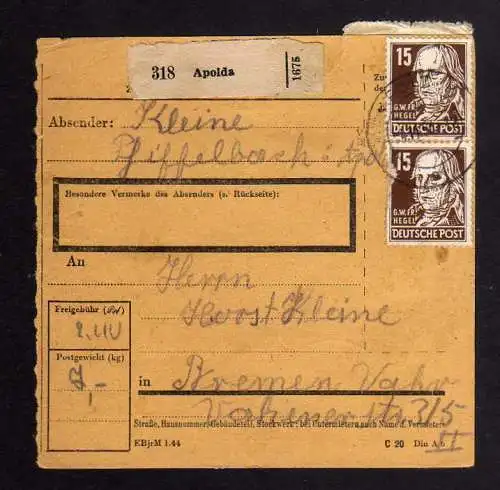 318 Apolda
1675
Absender: Kleine
Besondere Vermerke des Absenders (s. Rückseite):
An
Herrn
Horst Kleine
Freigebühr
Postgewicht (kg)
7,-
in Bremen Vahr
Vahrerstr. 315
II
Straße, Hausnummer, Gebäudeteil, Stockwerk; bei Untermietern auch Name d. Vermieters
EBjrM 1.44
C 20 Din A 6
15
G.W.FR.
HEGEL
DEUTSCHE POST
15
G.W.FR.
HEGEL
DEUTSCHE POST